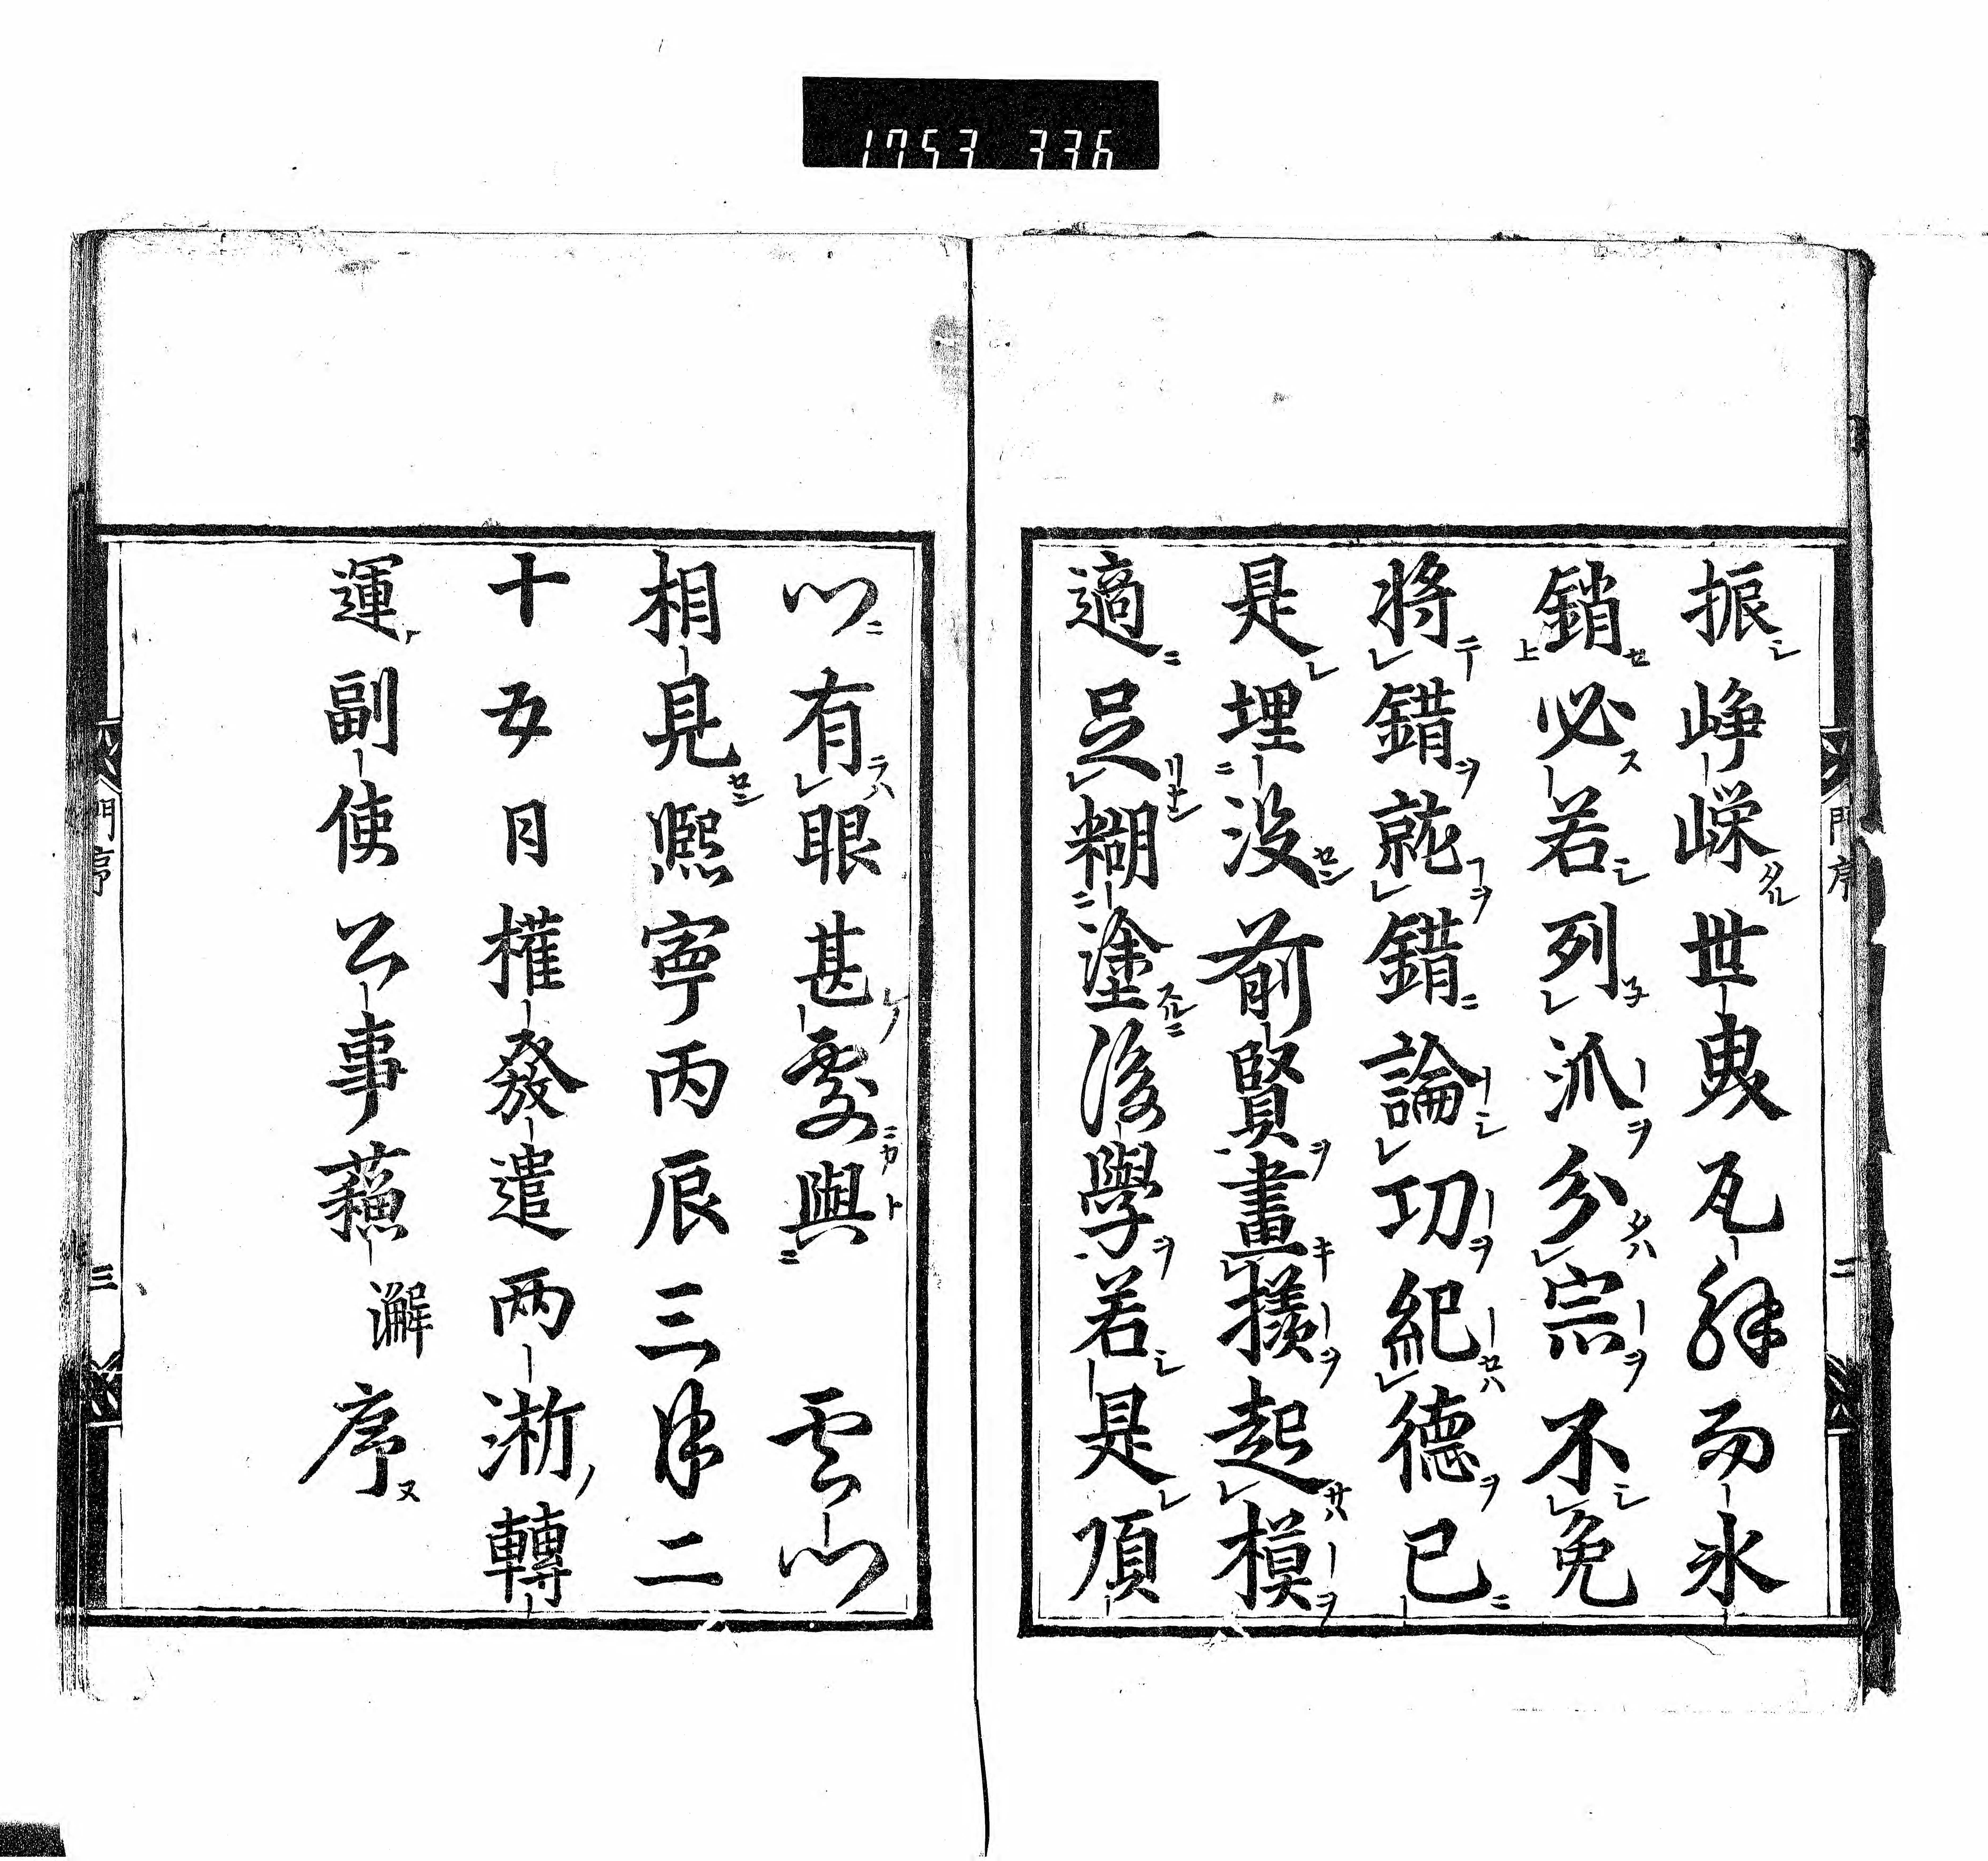 1753 336
振崢嶸世曳瓦解而氷
銷必若列派分宗不免
将錯就錯論功紀德已
是埋没前賢畫摸起模
適足糊塗後學若是頂
門有眼甚處與雲門
相見熙寧丙辰三年二
十五日權發遣兩浙轉
運副使公事蘓澥序
門序
二
門序
三